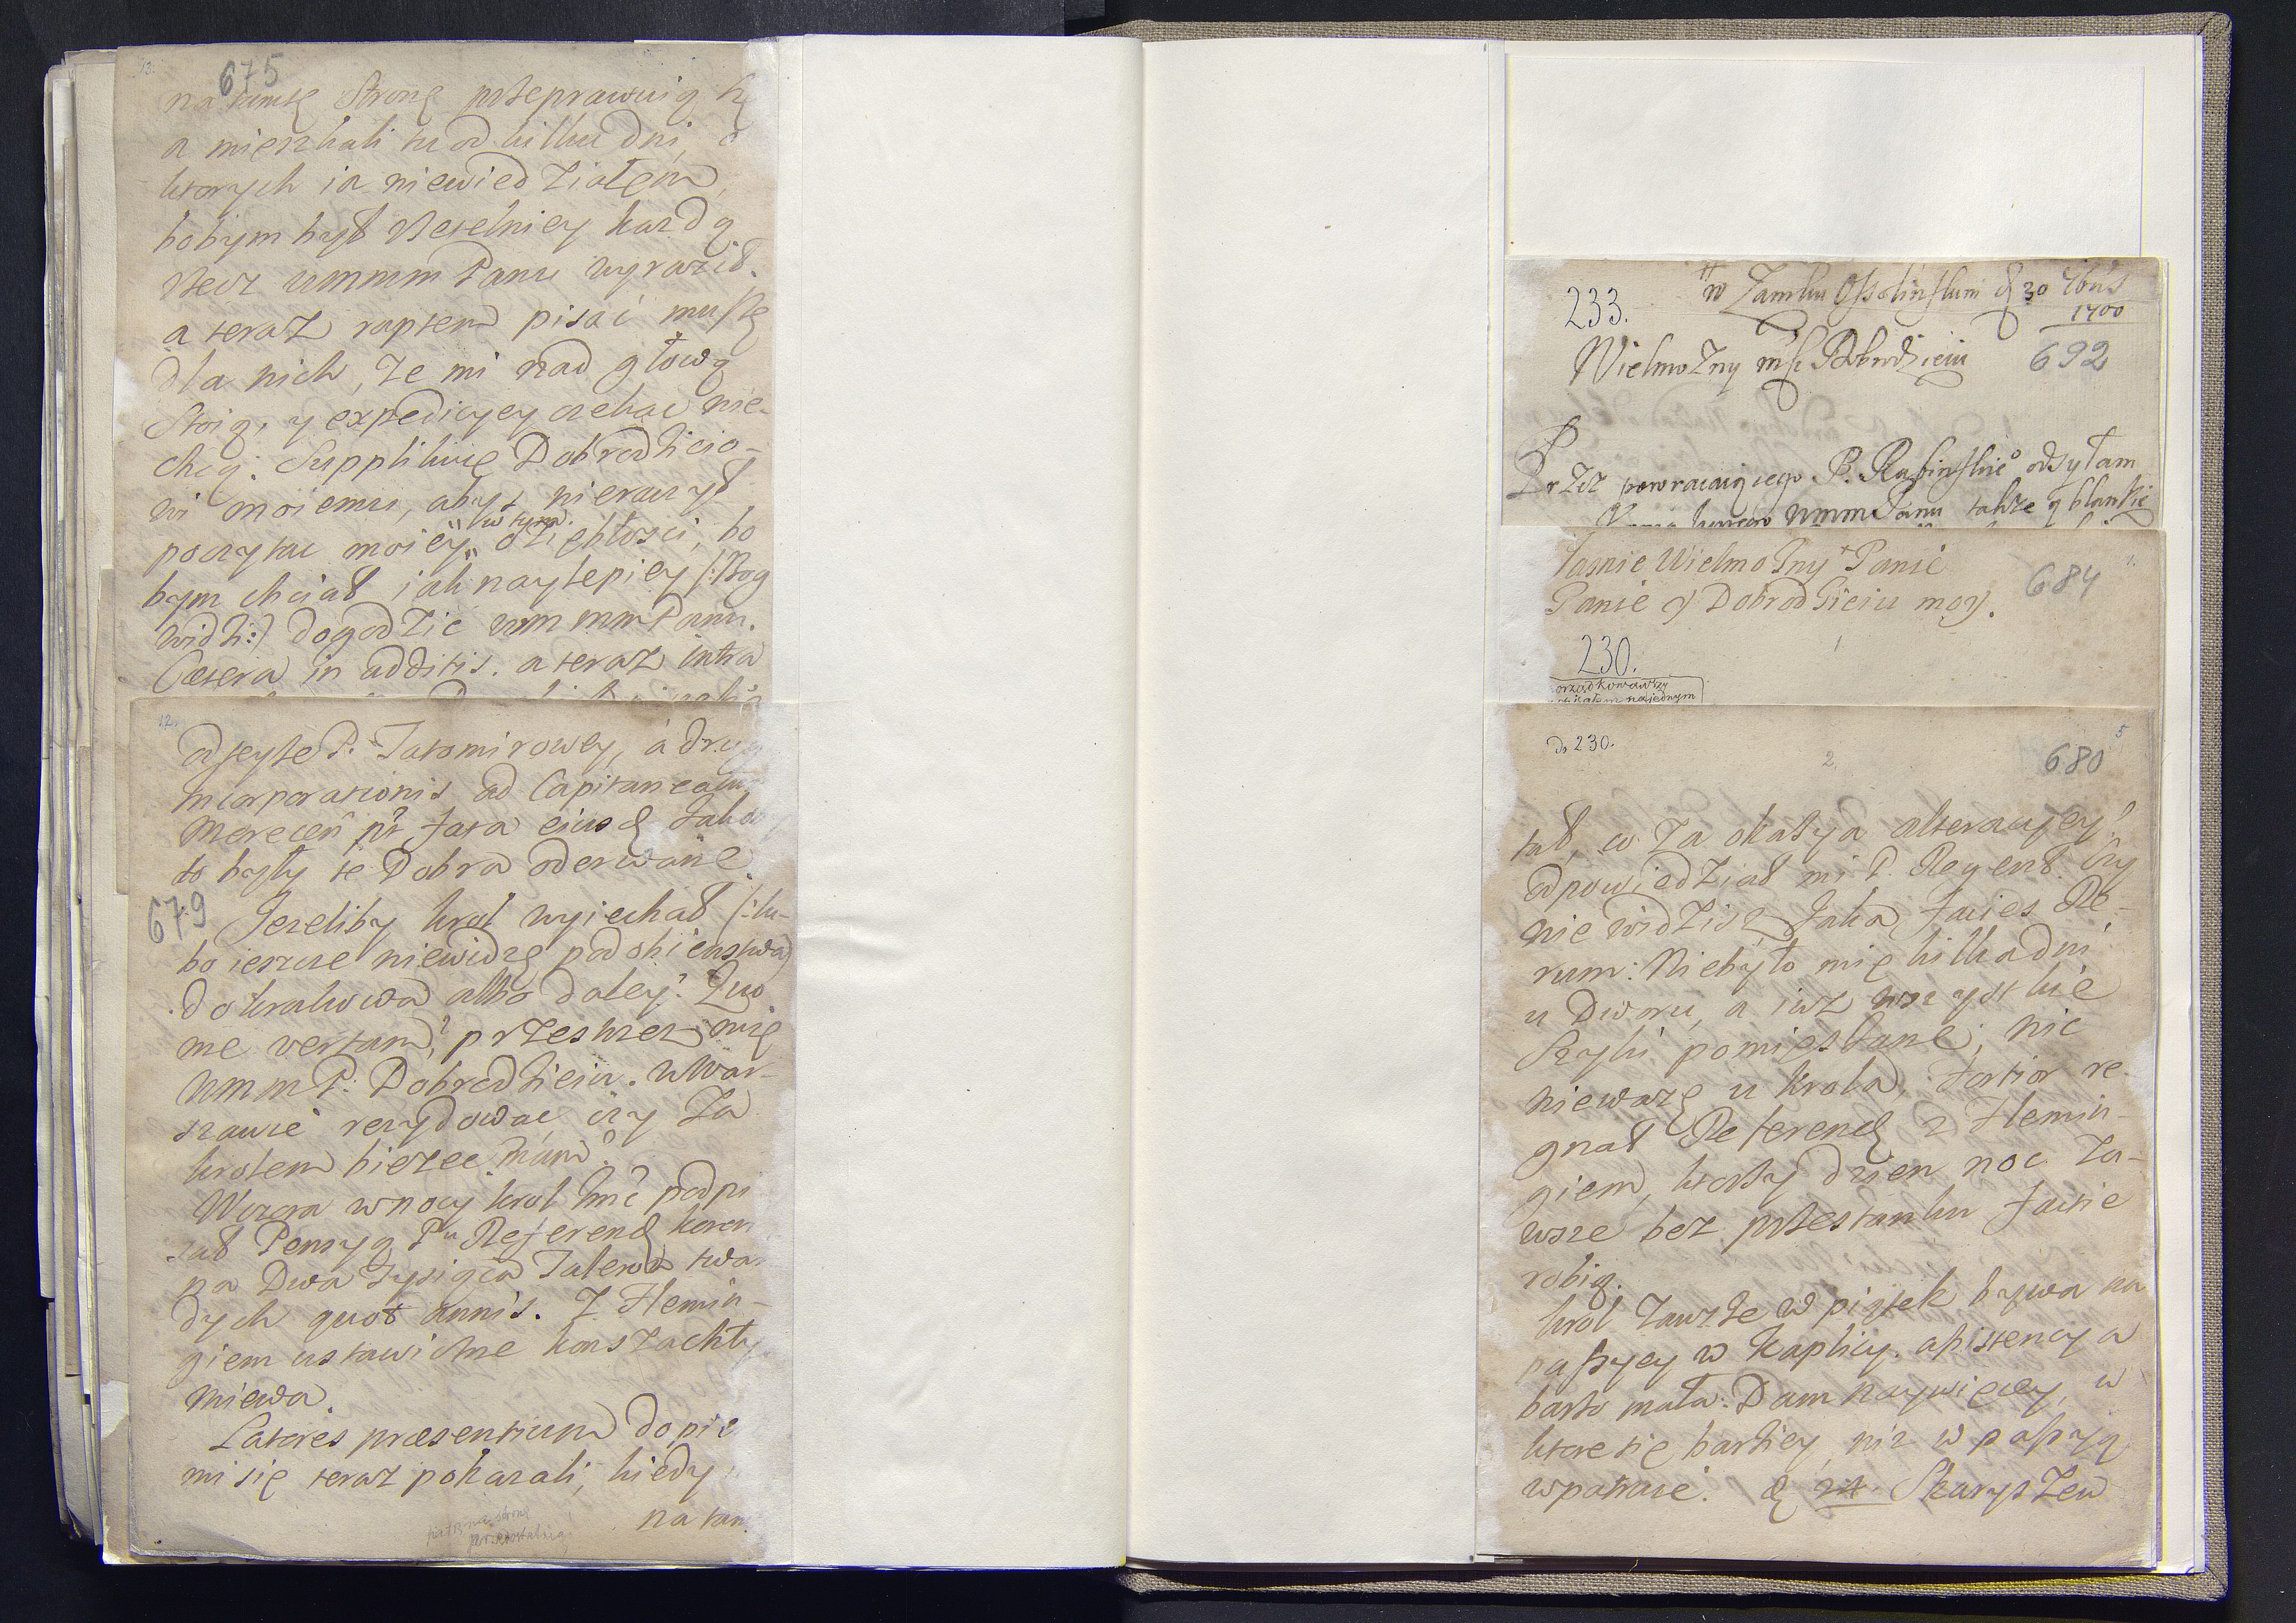 13.
675
na tamtę stronę przeprawuią
a mięszkali tu od kilku dni, o
ktorych ia niewiedziałem,
bobym był rzetelniey kazdą
rzecz ummmPanu wyraził.
a teraz raptem pisać muszę
dla nich, ze mi nad głową
stoią, y expedicyey czekac nie-
chcą. Supplikuię Dobrodzieio-
wi moiemu, abyś nieraczył
poczytac moiey w tym oziębłosci, bo
bym chciał iak naylepiey /:Bog
widzi:/ dogodzic ummmPanu.
Cætera in additis. a teraz intra
12.
odszyłe P. Tatomirowey, á drug
incorporationis ad Capitaneatum
to były te Dobra oderwane.
679
Jezeliby krol wyiechał /:lu-
bo ieszcze niewidzę podobienstwa
do krakowa albo daley? Quo
me vertam? przestrzez mię
ummmP. Dobrodzieiu. w War-
szawie rezydowac czy za
krolem biezec mam?
Wczora w nocy krol Jmć podpi
sał Pensyą Pu Referend koron
na Dwa tysiąca Talerow twar
dych quot annis. Z Flemin-
giem ustawiczne konszachty
miewa.
Latores præsentium dopir
mi się teraz pokazali, kiedy
na tam
233.
w Zamku Ossolinskim d 30 7bris
1700
Wielmozny msc PDobrodzieiu
692
Przez powracaiącego P. Rasinskie° odsyłam
ummmPanu takze y blankie
Jasnie Wielmozny Panie
Panie y Dobrodzieiu moy.
684
1.
230.
orządkowawszy
do 230.
2.
680
5
tał, co za okazya alteracyey?
odpowiedział mi P. Regent. Czy
nie widzisz Jaka facies Re-
rum: Niebyło mię kilka dni
u Dworu, a iuz wszystkie
szyki pomięszane; nic
niewazę u krola, fortior re-
gnat Referend z Flemin-
giem, ktorzy dzien noc za-
wsze bez przestanku facie
robią.
krol zawsze w piątek bywa na
passyey w kaplicy. assistencya
barzo mała: Dam naywięcey, w
ktore się barziey niz w passyą
wpatruie. d 24. Skaryszew